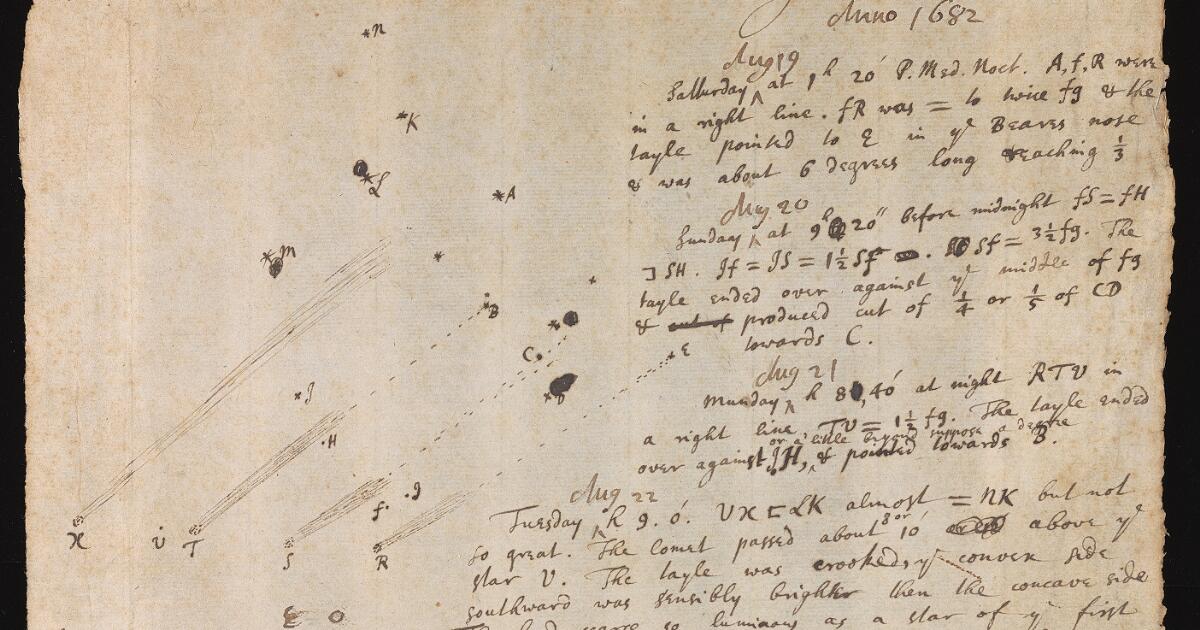 Anno 1682
Aug 19
Satturday ^ at 1h 20' P. Med. Noct. A, f, R were
in a right line. fR was = to twice fg & the
tayle pointed to E in ye Beares nose
& was about 6 degrees long reaching 1/3
Aug 20
Sunday ^ at 9h 20'' before midnight fS = fH
⊐ SH. If = IS = 1 1/2 Sf. Sf = 3 1/2 fg. The
tayle ended over against ye middle of fg
& out of produced cut of 1/4 or 1/5 of CD
towards C.
Aug 21
Munday ^ h 8, 40' at night RTV in
a right line, TV = 1 1/2 fg. The tayle ended
or a little beyond suppose a degree
over against IH, ^ & pointed towards B.
Aug 22
Tuesday ^ h 9. 0'. VX ⊏ LK almost = NK but not
so great. The Comet passed about 8 or 10' above ye
star V. The tayle was crooked, ye convex side
southward was sensibly brighter then the concave side
scarce so luminous as a star of ye first
N
K
L
A
M
B
C
E
D
I
H
g
f
X
V
T
S
R